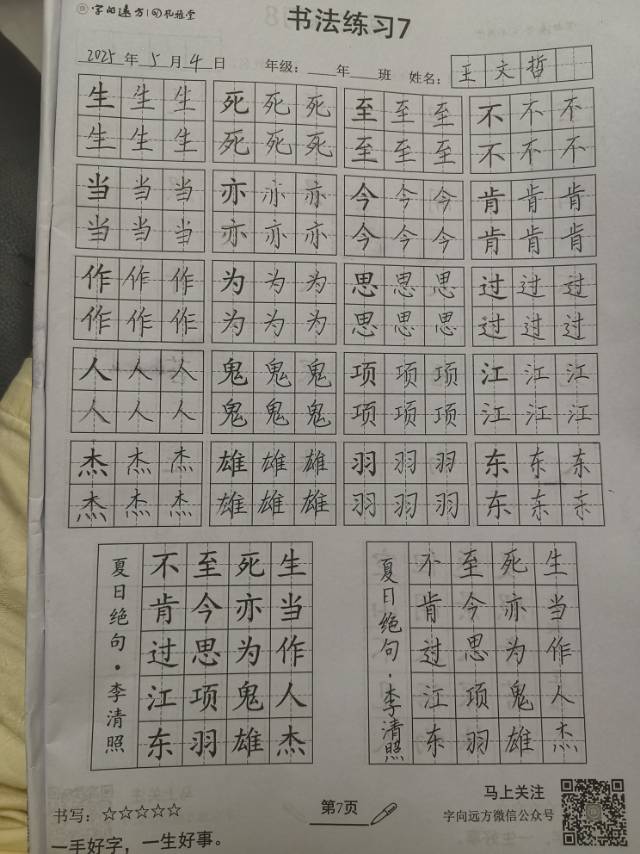 字向远方 孔雅堂
书法练习7
2025 年 5 月 4 日 年级：____年____班 姓名： 王文哲
生 生 生 死 死 死 至 至 至 不 不 不
生 生 生 死 死 死 至 至 至 不 不 不
当 当 当 亦 亦 亦 今 今 今 肯 肯 肯
当 当 当 亦 亦 亦 今 今 今 肯 肯 肯
作 作 作 为 为 为 思 思 思 过 过 过
作 作 作 为 为 为 思 思 思 过 过 过
人 人 人 鬼 鬼 鬼 项 项 项 江 江 江
人 人 人 鬼 鬼 鬼 项 项 项 江 江 江
杰 杰 杰 雄 雄 雄 羽 羽 羽 东 东 东
杰 杰 杰 雄 雄 雄 羽 羽 羽 东 东 东
夏日绝句·李清照
不至死生
肯今亦当
过思为作
江项鬼人
东羽雄杰
夏日绝句·李清照
不至死生
肯今亦当
过思为作
江项鬼人
东羽雄杰
书写：☆☆☆☆☆
一手好字，一生好事。
第7页
马上关注
字向远方微信公众号